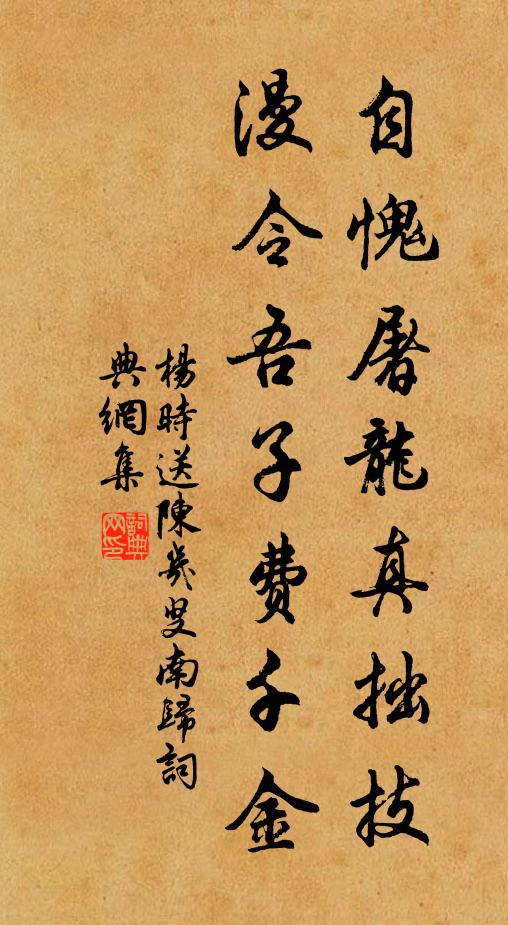 自愧屠龍真拙技
漫令吾子費千金
楊時送陳幾叟南歸詞
典網集
詞典網印